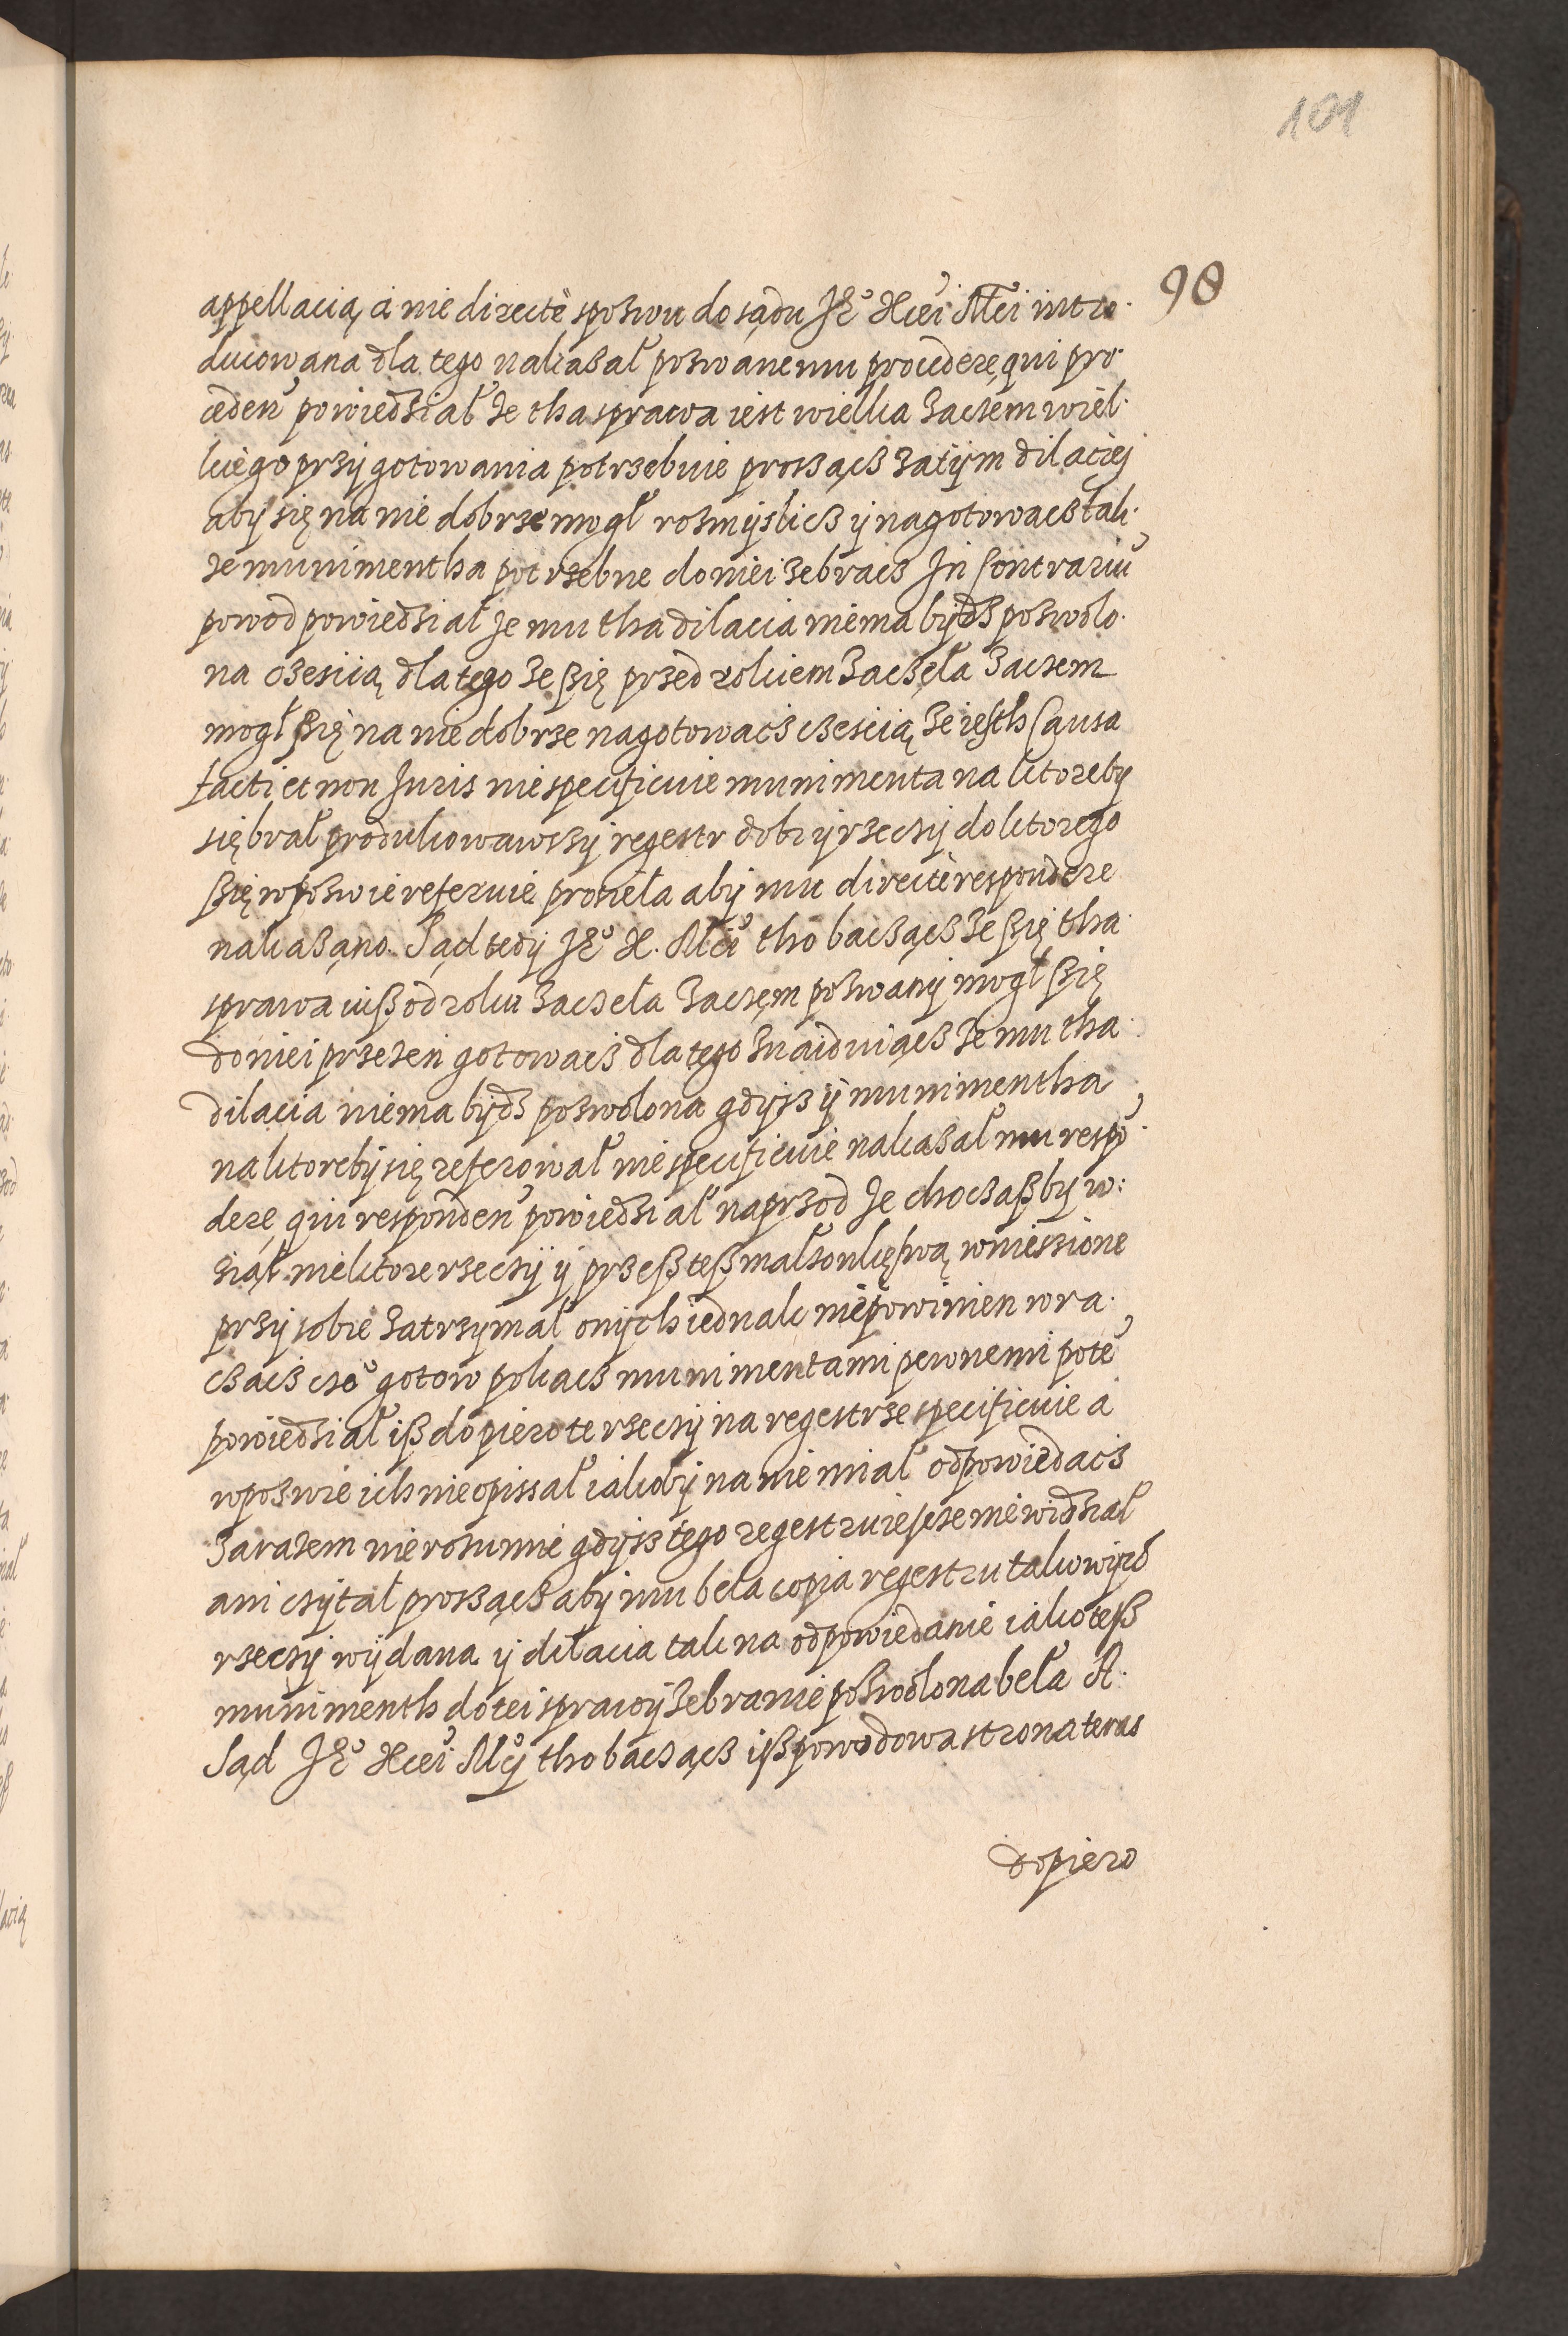 101
98
appellacią, a nie directè spozwu do sądu Jº Xcei Mci intro
ducowana dla tego nakazał pozwanemu procedere, qui pro
ceden powiedział że tha sprawa iest wielka zaczem wiel
kiego przygotowania potrzebuie proszącz zatym dilaciej
aby się na nie dobrze mogł rozmyslicz y nagotowacz tak
że munimentha potrzebne do niei zebracz In Contrariu
powod powiedział że mu tha dilacia niema bydz pozwolo
na czesiią dla tego że ßię przed rokiem zaczęła zaczem
mogł ßię na nie dobrze nagotowacz czesiią że iesth Causa
facti et non Juris niespecificuie munimenta na ktoreby
się brał produkowawszy regestr dobr y rzeczy do ktorego
ßię wpozwie referuie prosieła aby mu directè respondere
nakazano. Sąd tedy Jº X. Mci tho baczącz że ßię tha
sprawa iuß od roku zaczeła zaczęm pozwany mogł ßię
do niei przezen gotowacz dla tego znaiduiącz że mu tha
dilacia niema bydz pozwolona gdysz y munimentha
na ktoreby się referował niespecificuie nakazał mu respō
dere, qui responden powiedział naprzod że choczaßby w:
siął niektore rzeczy y przeß teß małzonkę swą wniessione
przy sobie zatrzymał onych iednak niepowinien wra
czacz czeº gotow pokacz munimentami pewnemi potē
powiedział iß dopiero te rzeczy na regestrze specificuie a
wpozwie ich nie opissał iakoby na nie miał odpowiedacz
zarazem nierozumie gdysz tego regestru iescze niewidział
ani czytał proszącz aby mu beła copia regestru takowych
rzeczy wydana y dilacia tak na odpowiedanie iako teß
munimenth do tei sprawy zebranie pozwolona beła A.
Sąd Jº Xcei Mcy tho baczącz iß powodowa strona teras
dopiero